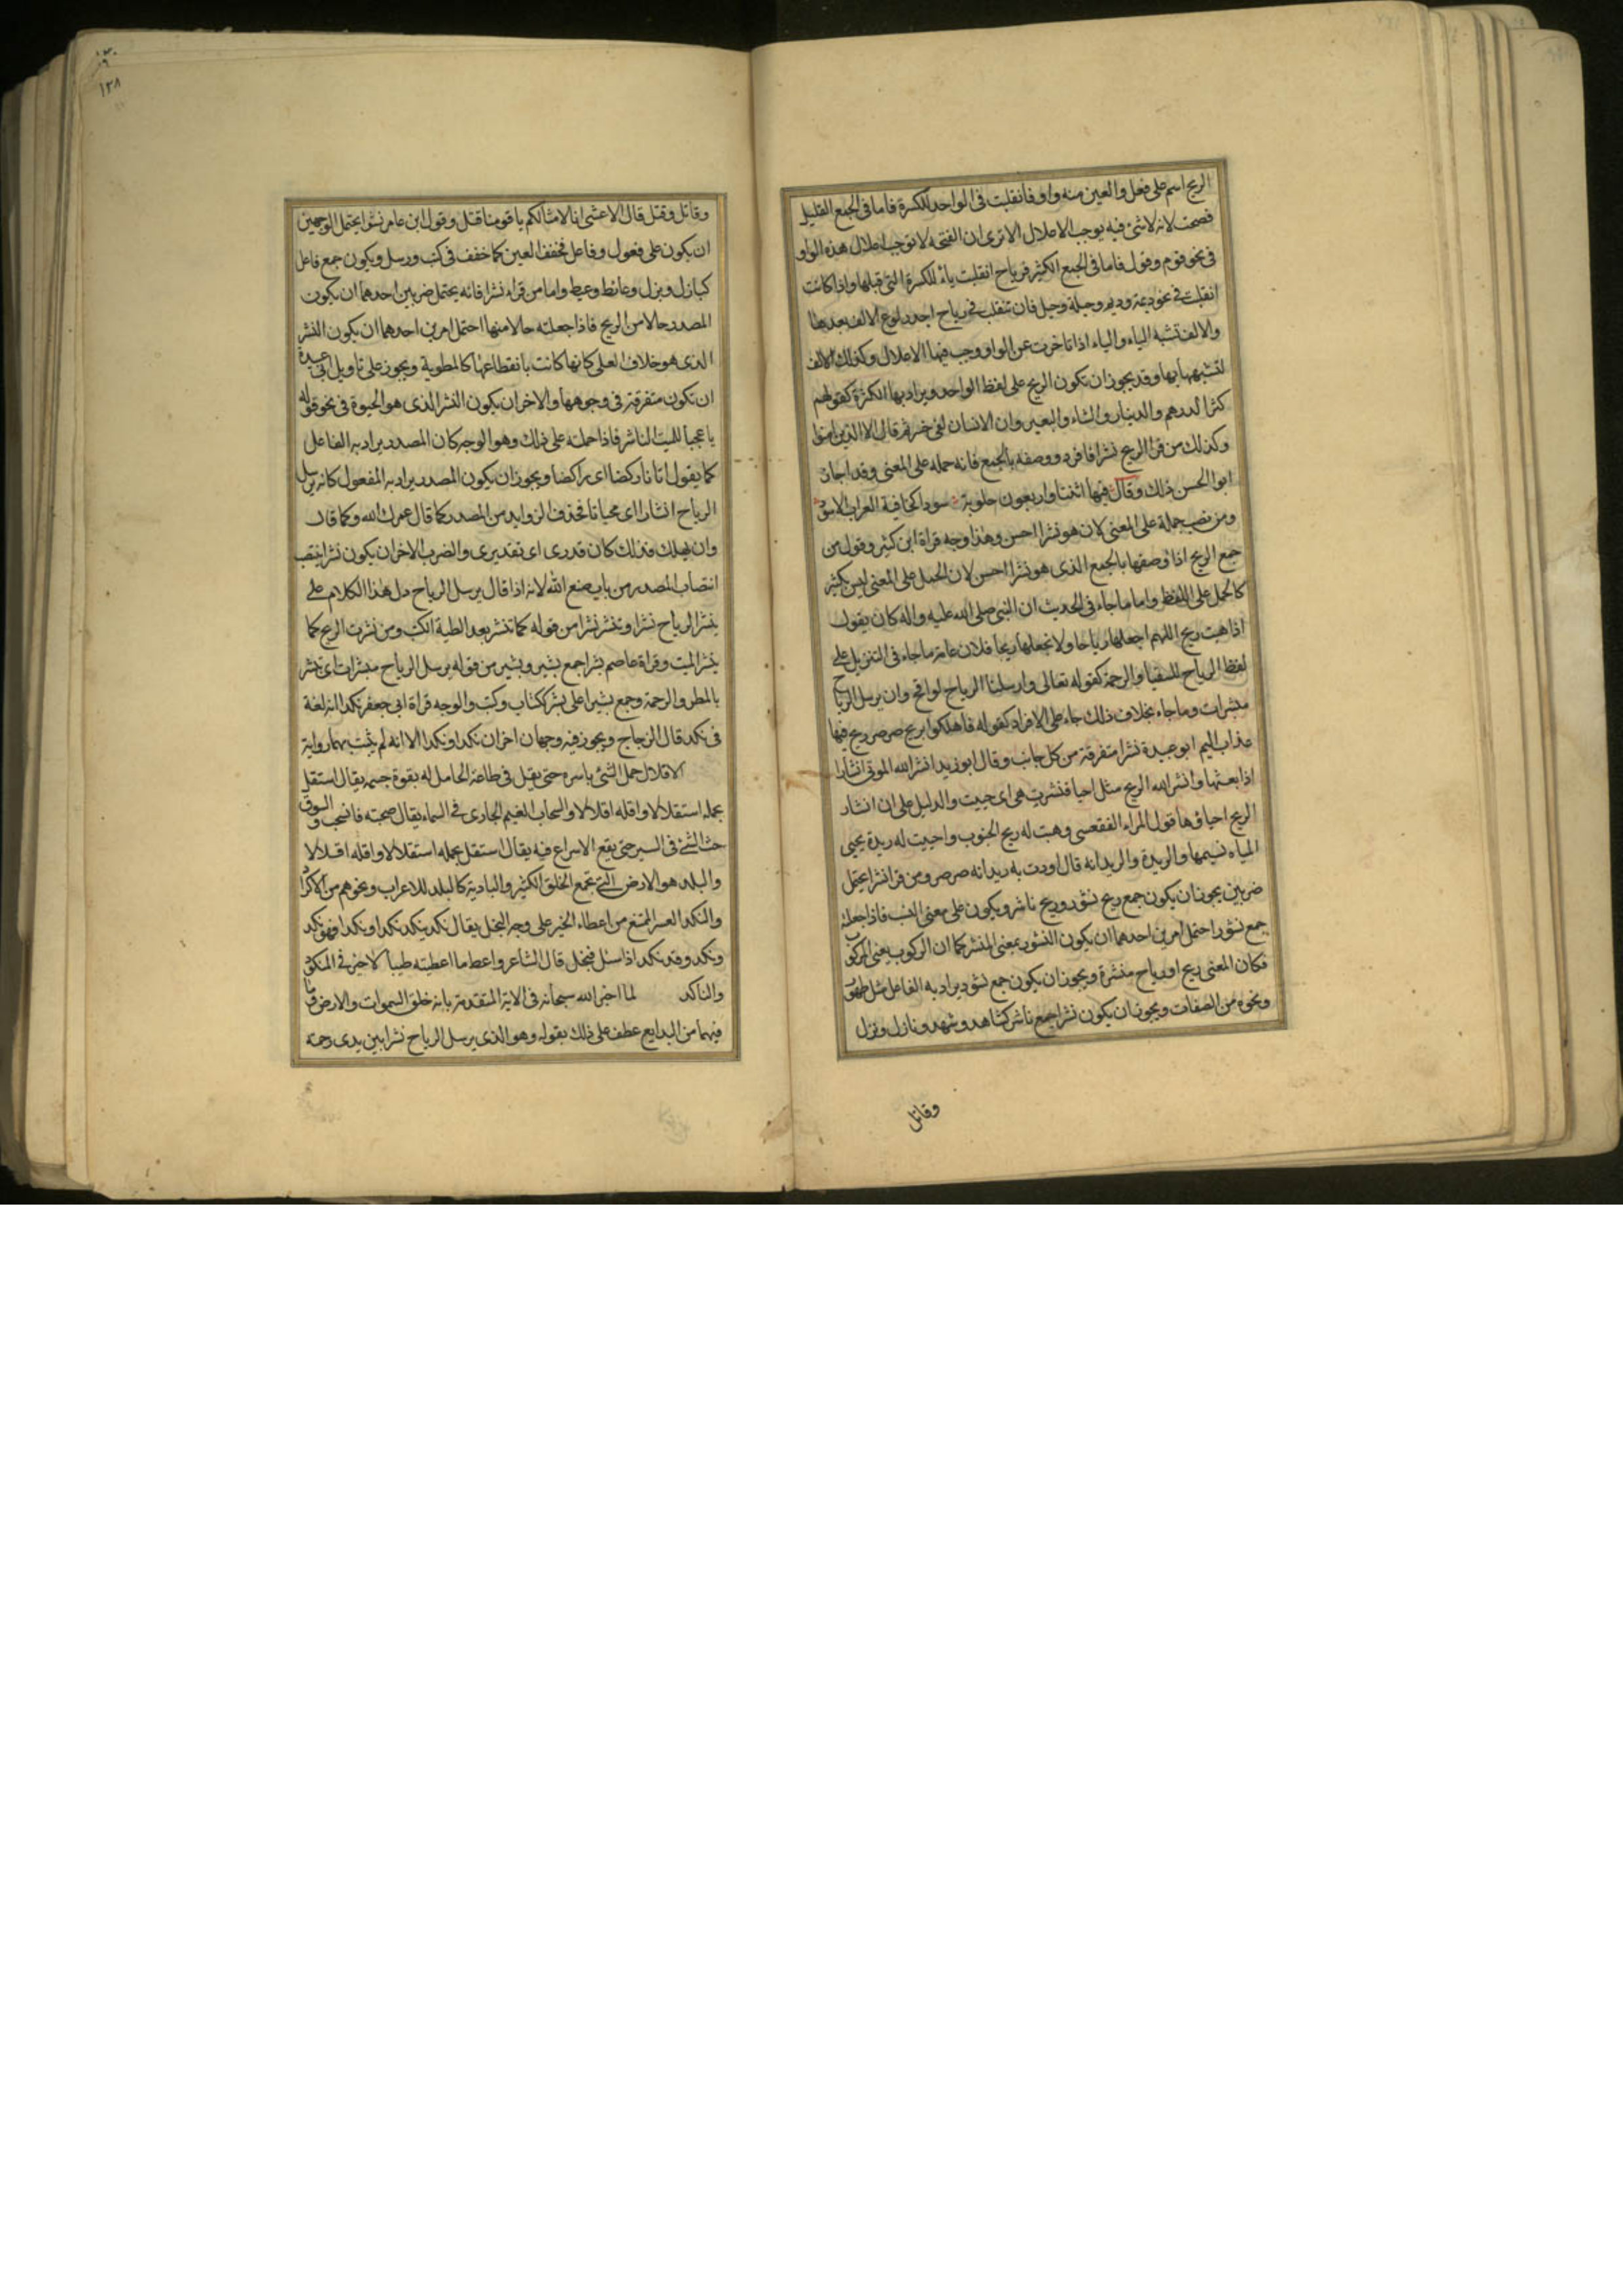 الريح اسم على فعل والعين منه واو فانقلبت فى الواحد للكسرة فاما فى الجمع القليل
فصحت لانه لاشئ فيه يوجب الاعلال الا ترى ان الفتحه لا توجب اعلال هذه الواو
فى نحو قوم وقول فاما فى الجمع الكثير فرياح انقلبت ياء للكسرة التى قبلها واذا كانت
انقلبت فى نحو ديمة وديم وحيلة وحيل فان تنقلب فى رياح اجدر لوقوع الالف بعدها
والالف تشبه الياء والياء اذا تاخرت عن الواو وجب فيها الاعلال وكذلك الالف
لتشبهها بها وقد يجوز ان تكون الريح على لفظ الواحد ويراد بها الكثرة كقولهم
كثر الدرهم والدينار والشاء والبعير وان الانسان لفى خسر ثم قال الا الذين امنوا
وكذلك من قرا الريح نشرا فافرد ووصفه بالجمع فانه حمله على المعنى وقد اجاز
ابو الحسن ذلك وقال فيها اثنتا واربعون حلوبة سودا كخافية الغراب الاسود
ومن نصب حمله على المعنى لان هو نشرا احسن وهذا وجه قراة ابن كثير وقول من
جمع الريح اذا وصفها بالجمع الذى هو نشرا احسن لان الحمل على المعنى ليس بكثير
كالحمل على اللفظ واما ما جاء فى الحديث ان النبى صلى الله عليه واله كان يقول
اذا هبت ريح اللهم اجعلها رياحا ولا تجعلها ريحا فلان عامة ما جاء فى التنزيل على
لفظ الرياح للسقيا والرحمة كقوله تعالى وارسلنا الرياح لواقح وان يرسل الرياح
مبشرات وما جاء بخلاف ذلك جاء على الافراد كقوله فاهلكوا بريح صرصر ريح فيها
عذاب اليم ابو عبيدة نشرا متفرقة من كل جانب وقال ابو زيد انشر الله الموتى انشارا
اذا بعثها وانشر الله الريح مثل احيا فنشرت هى اى حييت والدليل على ان انشار
الريح احياؤها قول المراء الفقعسى وهبت له ريح الجنوب واحييت له ريدة يحيى
المياه نسيمها والريدة والريدانه قال اودت به ريدانه صرصر ومن قرا نشرا يحتمل
ضربين يجوز ان يكون جمع ريح نشور وريح ناشر ويكون على معنى النسب فاذا جعلته
جمع نشور احتمل امرين احدهما ان يكون النشور بمعنى المنشر كما ان الركوب بمعنى المركوب
فكان المعنى ريح او رياح منشرة ويجوز ان يكون جمع نشور يراد به الفاعل مثل طهور
ونحوه من الصفات ويجوز ان يكون نشرا جمع ناشر كشاهد وشهد ونازل ونزل
وقاتل
١٢٨
وقاتل وقتل قال الاعشى انا لامثالكم يا قومنا قتل وقول ابن عامر نشرا يحتمل الوجهين
ان يكون على فعول وفاعل فخفف العين كما خفف فى كتب ورسل ويكون جمع فاعل
كبازل وبزل وعائط وعيط واما من قراء نشرا فانه يحتمل ضربين احدهما ان يكون
المصدر حالا من الريح فاذا جعلته حالا منها احتمل امرين احدهما ان يكون النشر
الذى هو خلاف الطى كانها كانت بانقطاعها كالمطوية ويجوز على تاويل ابى عبيدة
ان تكون متفرقة فى وجوهها والاخر ان يكون النشر الذى هو الحيوة فى نحو قوله
يا عجبا للميت الناشر فاذا حملته على ذلك وهو الوجه كان المصدر يراد به الفاعل
كما يقول اتانا ركضا اى راكضا ويجوز ان يكون المصدر يراد به المفعول كانه يرسل
الرياح انشارا اى محياتا فحذف الزوايد من المصدر كما قال عمرك الله وكما قال
وان يهلك فذلك كان قدرى اى تقديرى والضرب الاخر ان يكون نشرا ينتصب
انتصاب المصدر من باب صنع الله لانه اذا قال يرسل الرياح دل هذا الكلام على
ينشر الرياح نشرا وتنشر نشرا من قوله كما تنشر بعد الطية الكتب ومن نشرت الريح كما
ينشر الميت وقراة عاصم بشرا جمع بشير وبشير من قوله يرسل الرياح مبشرات اى تبشر
بالمطر والرحمة وجمع بشيرا على بشر ككتاب وكتب والوجه قراة ابى جعفر نكدا انه لغة
فى نكد قال الزجاج ويجوز فيه وجهان اخران نكدا ونكدا الا انه لم يثبت بهما رواية
الاقلال حمل الشئ باسره حتى يقل فى طاقة الحامل له بقوة جسمه يقال استقل
بحمله استقلالا واقله اقلالا والسحاب الغيم الجارى فى السماء يقال صحبته فانسحب والسوق
حث الشئ فى السير حتى يقع الاسراع فيه يقال استقل بحمله استقلالا واقله اقلالا
والبلد هو الارض التى تجمع الخلق الكثير والبادية كالبلد للاعراب ونحوهم من الاكراد
والنكد العسر الممتنع من اعطاء الخير على وجه البخل يقال نكد ينكد نكدا ونكدا فهو نكد
ونكد وقد نكد اذا سئل فبخل قال الشاعر واعط ما اعطيته طيبا لا خير فى المنكود
والناكد لما اخبر الله سبحانه فى الاية المتقدمة بانه خلق السموات والارض وما
فيهما من البدايع عطف على ذلك بقوله وهو الذى يرسل الرياح نشرا بين يدى رحمته